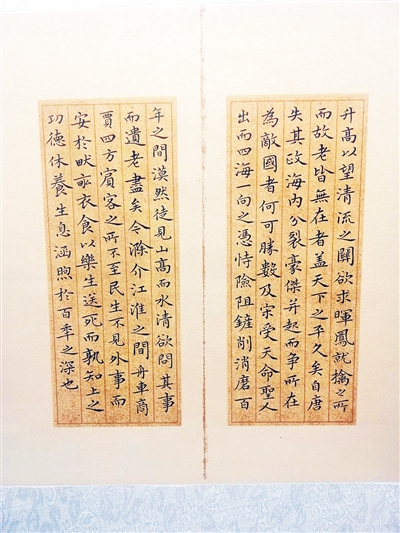 升高以望清流之關欲求暉鳳就擒之所
而故老皆無在者蓋天下之平久矣自唐
失其政海內分裂豪傑并起而爭所在
為敵國者何可勝數及宋受天命聖人
出而四海一向之憑恃險阻鏟削消磨百
年之間漠然徒見山高而水清欲問其事
而遺老盡矣今滁介江淮之間舟車商
賈四方賓客之所不至民生不見外事而
安於畎畝衣食以樂生送死而孰知上之
功德休養生息涵煦於百年之深也